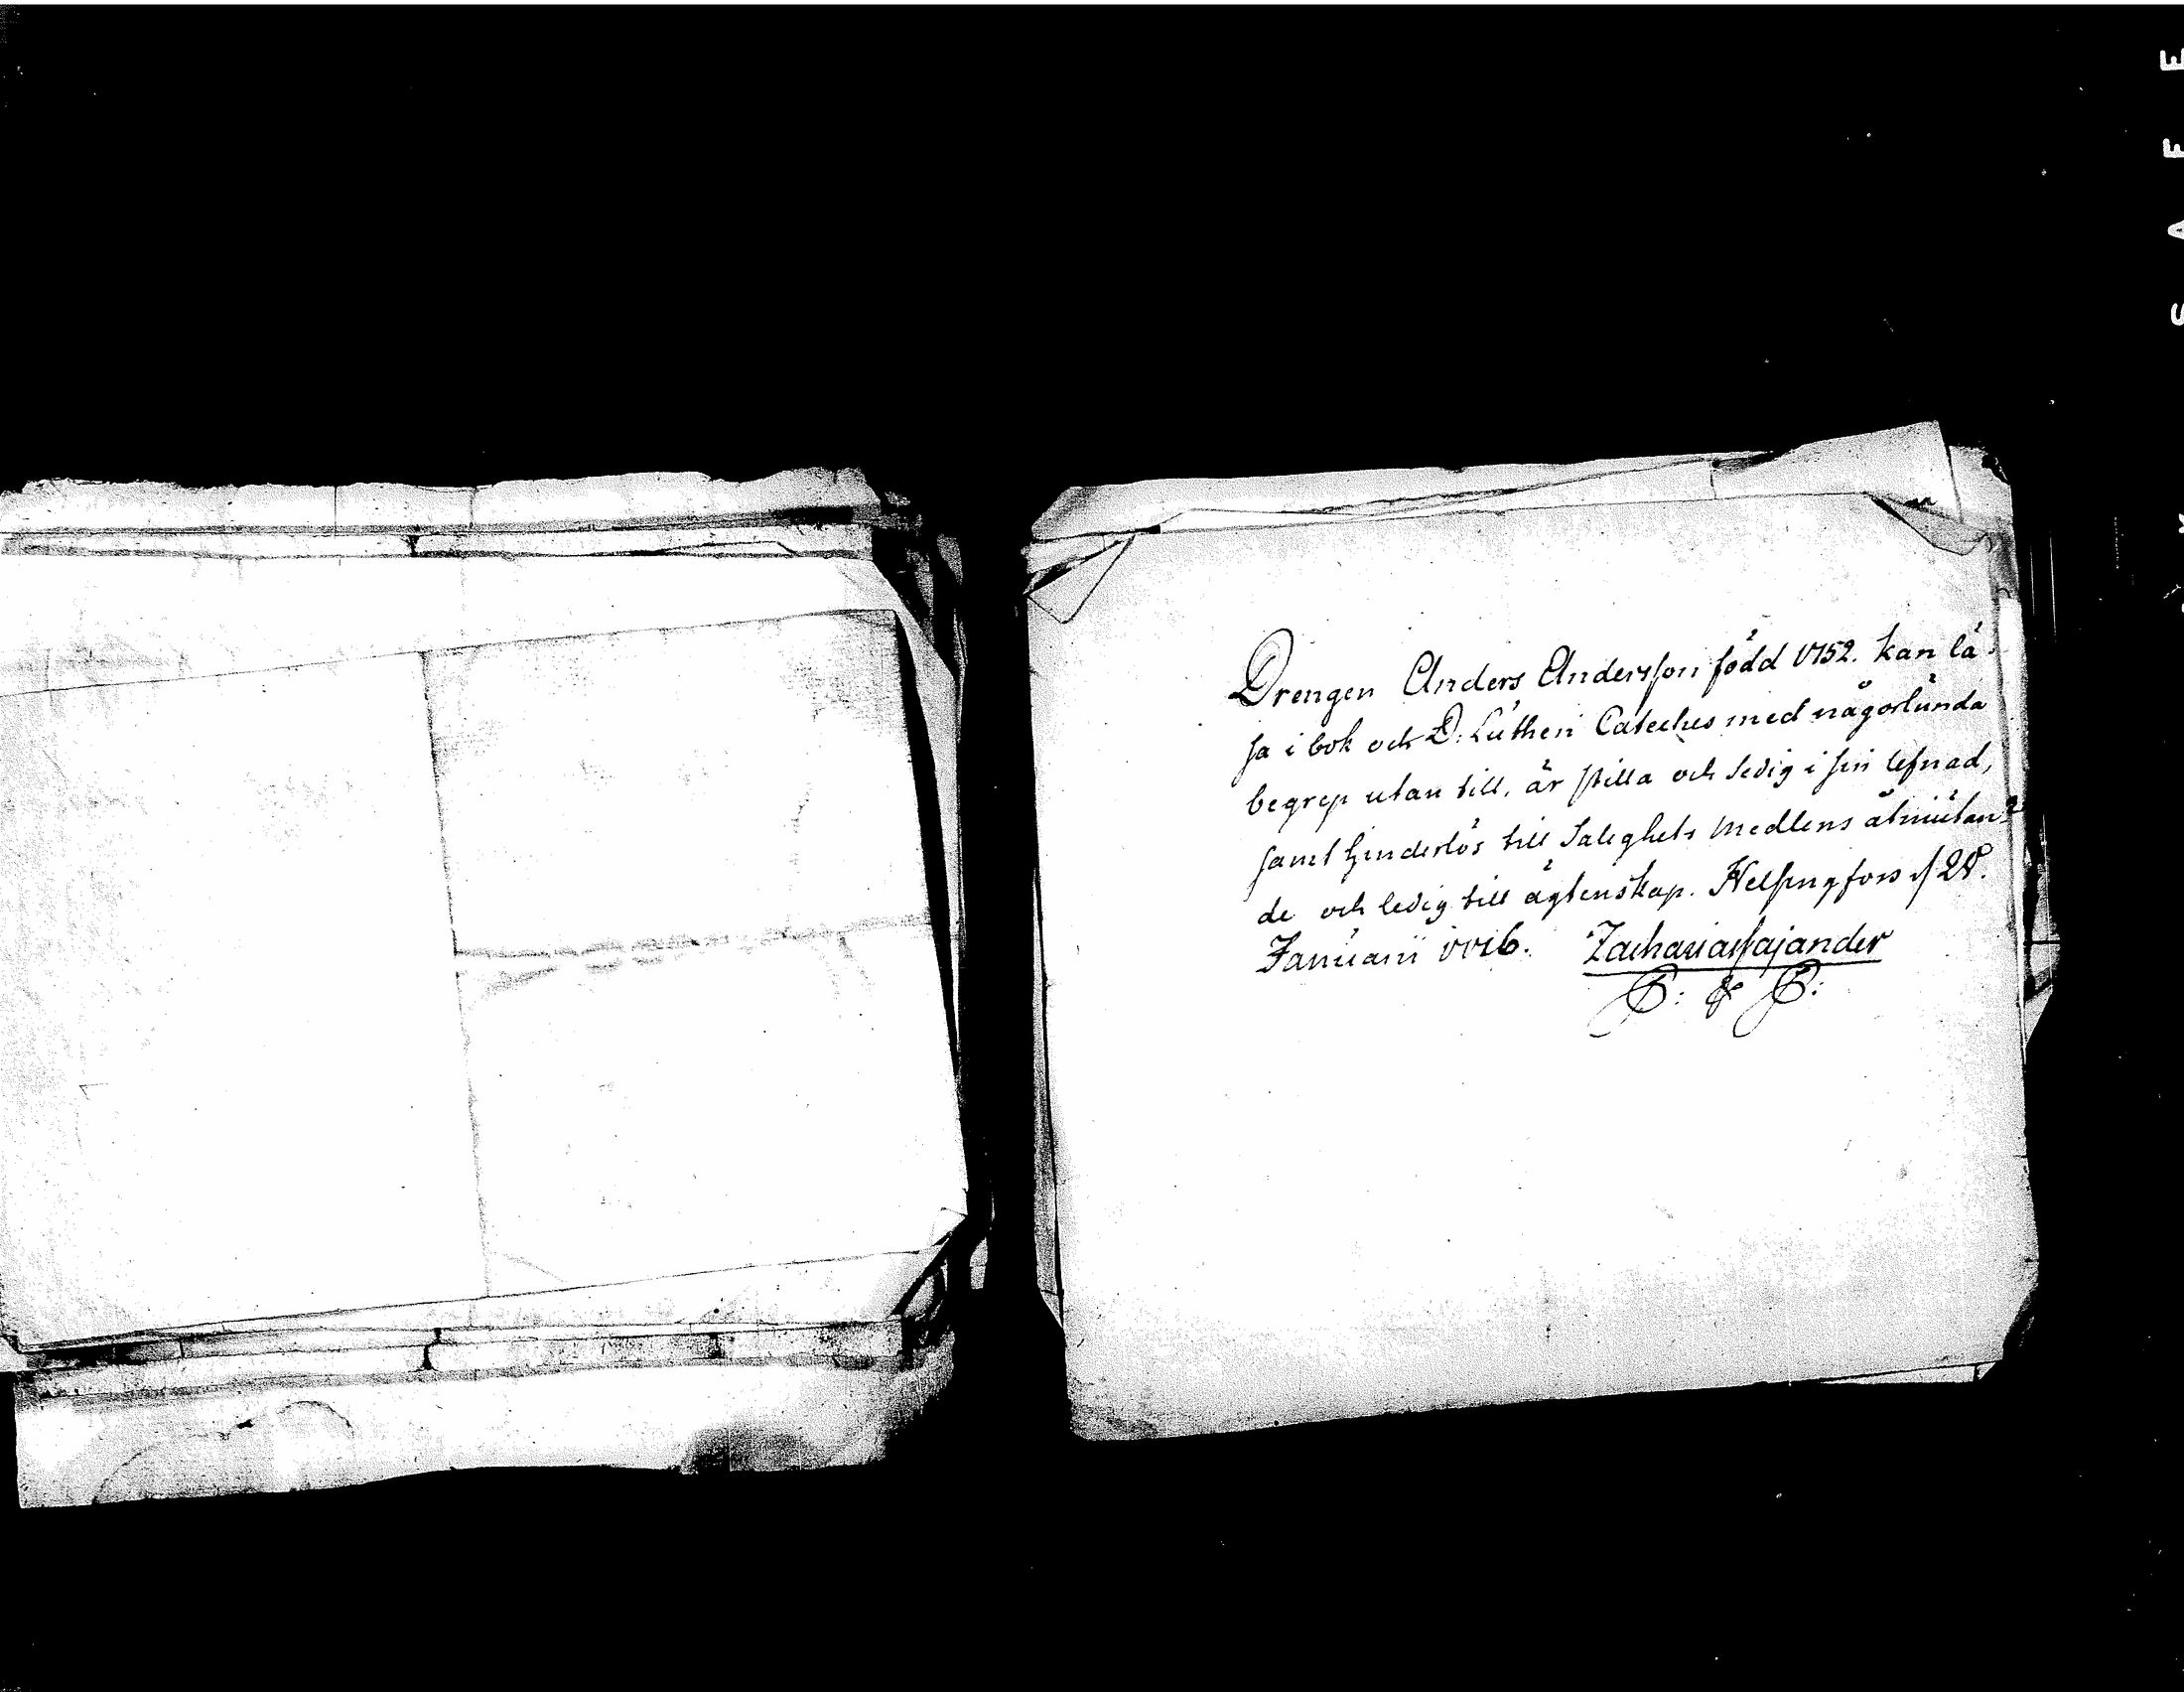 Drengen Anders Andersson född 1752. kan lä-
sa i bok och D. Lutheri Cateches med någorlunda
begrep utan till, är stilla och sedig i sin lefnad,
samt hinderlös till Salighets Medlens åtniutan-
de och ledig till ägtenskap. Helsingfors d 28.
Januarii 1776. Zacharias Cajander
P: & P: